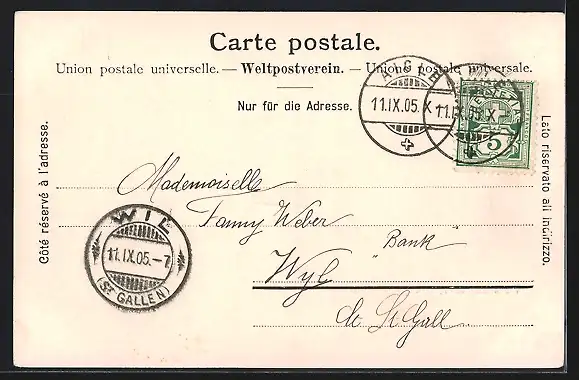 Carte postale.
Union postale universelle. — Weltpostverein. — Unione postale universale.
Nur für die Adresse.
Côté réservé à l'adresse.
Lato riservato all indirizzo.
11.IX.05. X
11.IX.05. X
5
Mademoiselle
Fanny Weber
"Bank"
Wyl
Ct. St. Gall
WIL
11.IX.05.-7
(ST GALLEN)